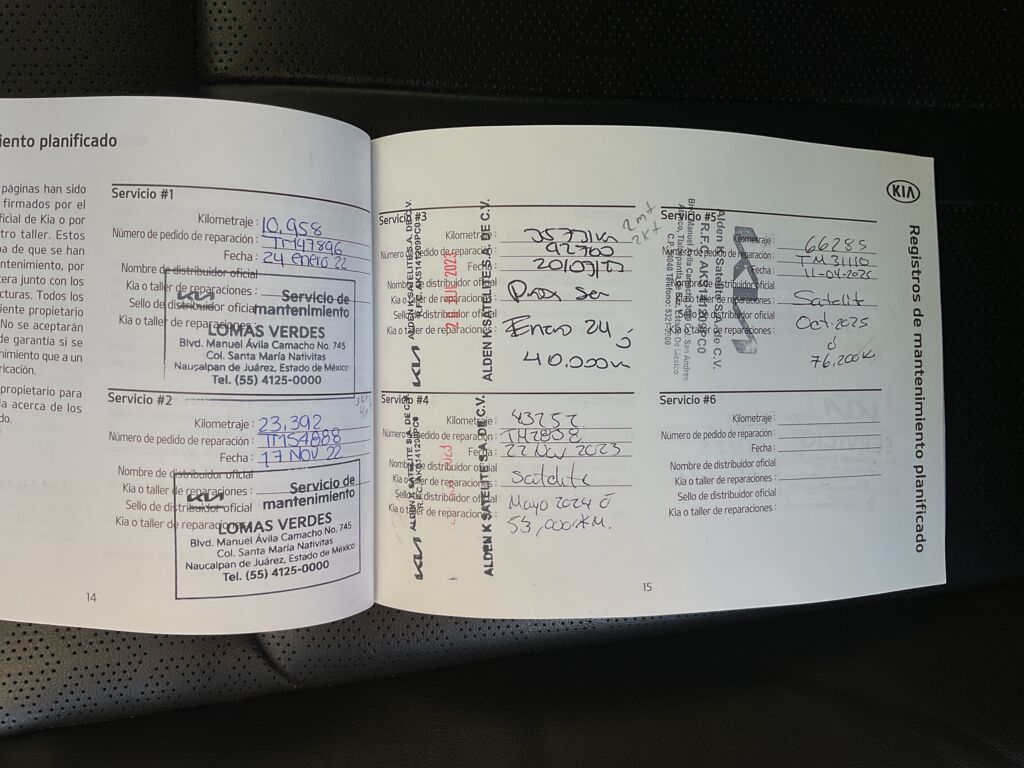 iento planificado
páginas han sido
firmados por el
ficial de Kia o por
tro taller. Estos
a de que se han
ntenimiento, por
era junto con los
cturas. Todos los
iente propietario
No se aceptarán
de garantía si se
nimiento que a un
ricación.
propietario para
a acerca de los
do.
Servicio #1
Kilometraje : 10,958
Número de pedido de reparación : TM47896
Fecha : 24 enero 22
Nombre de distribuidor oficial
Kia o taller de reparaciones :
Sello de distribuidor oficial
Kia o taller de reparaciones :
KIA Servicio de
mantenimiento
LOMAS VERDES
Blvd. Manuel Ávila Camacho No. 745
Col. Santa María Nativitas
Naucalpan de Juárez, Estado de México
Tel. (55) 4125-0000
Servicio #2
Kilometraje : 23,392
Número de pedido de reparación : TM54888
Fecha : 17 NOV 22
Nombre de distribuidor oficial
Kia o taller de reparaciones :
Sello de distribuidor oficial
Kia o taller de reparaciones :
KIA Servicio de
mantenimiento
LOMAS VERDES
Blvd. Manuel Ávila Camacho No. 745
Col. Santa María Nativitas
Naucalpan de Juárez, Estado de México
Tel. (55) 4125-0000
14
KIA
Registros de mantenimiento planificado
Servicio #3
Kilometraje
Número de pedido de reparación : 92700
Fecha :
Nombre de distribuidor oficial
Kia o taller de reparaciones :
Sello de distribuidor oficial
Kia o taller de reparaciones :
Enero 24 ó
40.000
KIA
ALDEN K SATELITE S.A. DE C.V.
R.F.C. AKS141209PC0
ALDEN K SATELITE S.A. DE C.V.
Servicio #4
Kilometraje : 43757
Número de pedido de reparación : TM2808
Fecha : 22 Nov 2023
Nombre de distribuidor oficial
Kia o taller de reparaciones : Satelite
Sello de distribuidor oficial
Kia o taller de reparaciones :
Mayo 2024 ó
53,000 KM.
KIA
ALDEN K SATELITE S.A. DE C.V.
R.F.C. AKS141209PC0
ALDEN K SATELITE S.A. DE C.V.
Servicio #5
Kilometraje : 66285
Número de pedido de reparación : TM31110
Fecha : 11-04-2025
Nombre de distribuidor oficial
Kia o taller de reparaciones : Satelite
Sello de distribuidor oficial
Kia o taller de reparaciones :
Oct-2025
ó
76,200 K
KIA
Alden K Satelite S.A. de C.V.
R.F.C. AKS141209PC0
Servicio #6
Kilometraje :
Número de pedido de reparación :
Fecha :
Nombre de distribuidor oficial
Kia o taller de reparaciones :
Sello de distribuidor oficial
Kia o taller de reparaciones :
15